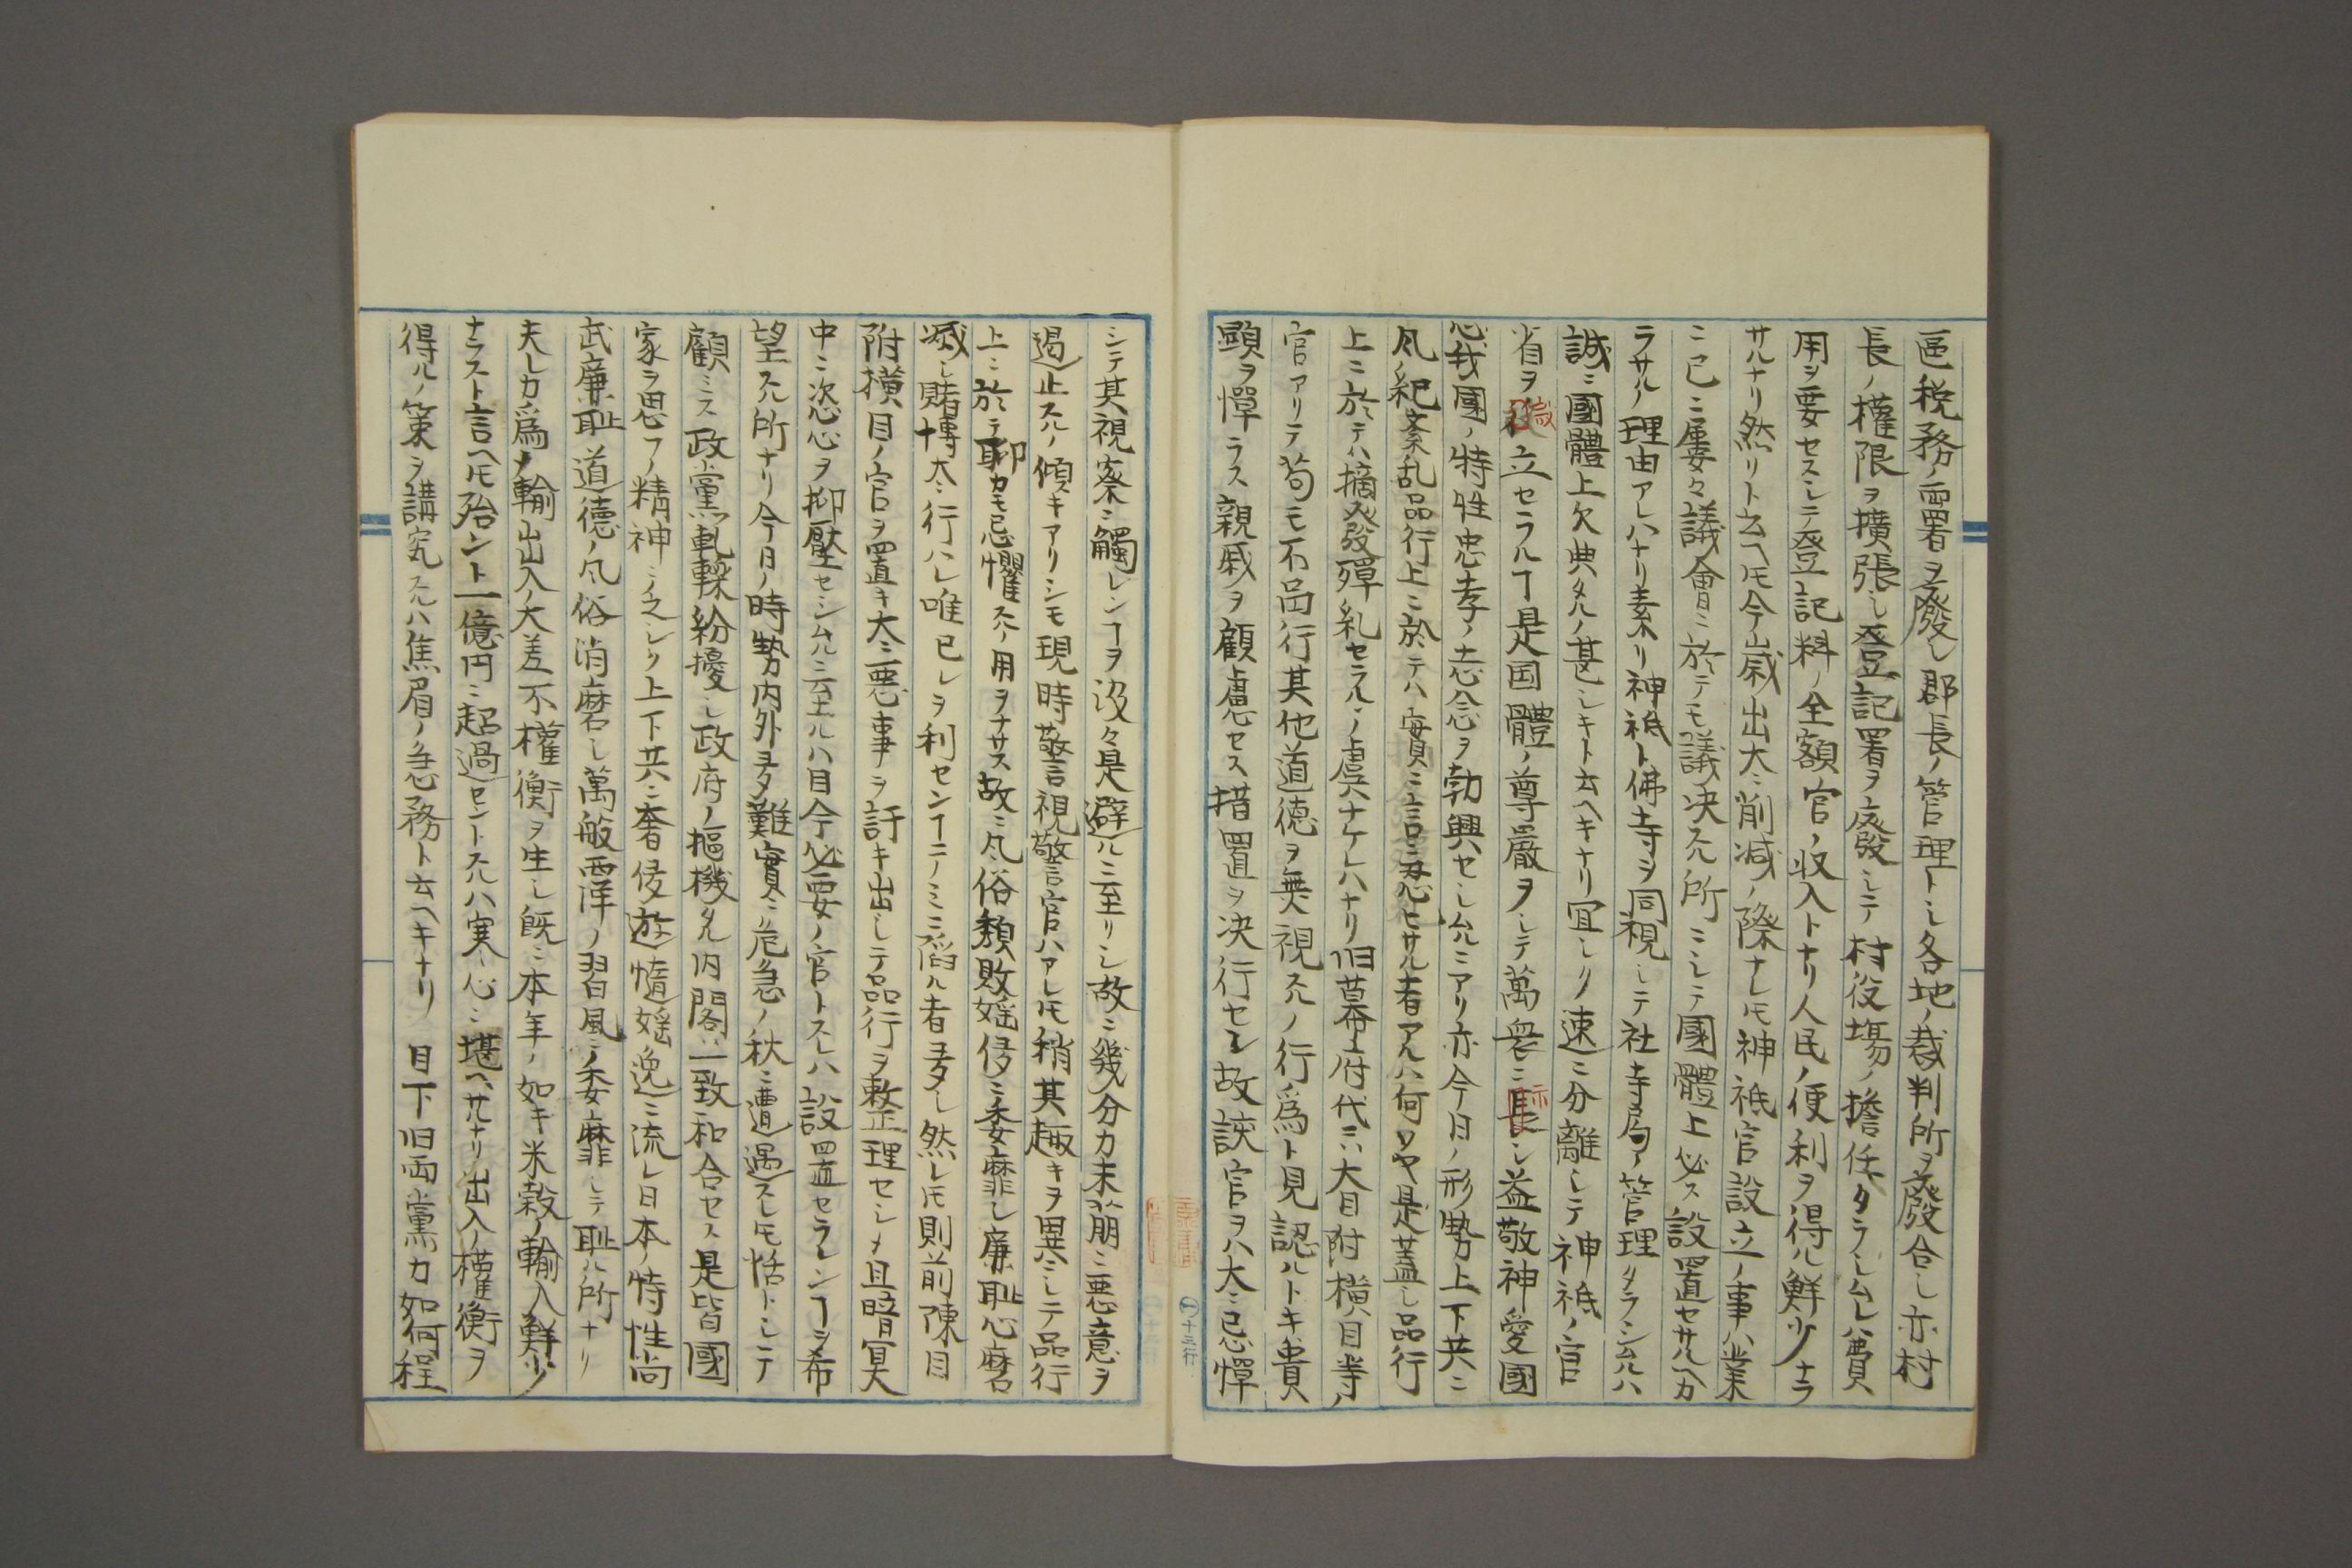 邑税務ノ署ヲ廢シ郡長ノ管理トシ各地ノ裁判所ヲ廢合シ亦村
長ノ權限ヲ擴張シ登記署ヲ廢シテ村役場ノ擔任タラシムレハ費
用ヲ要セスシテ登記料ノ全額官ノ収入トナリ人民ノ便利ヲ得ル鮮少ナラ
サルナリ然リト云ヘ𪜈今歳出大ニ削減ノ際ナレ𪜈神祇官設立ノ事ハ業
ニ已ニ屡々議會ニ於テモ議决スル所ニシテ國體上必ス設置セサルヘカ
ラサルノ理由アレハナリ素リ神祇ト佛寺ヲ同視シテ社寺局ノ管理タラシムルハ
誠ニ國體上欠典タルノ甚シキト云ヘキナリ冝シク速ニ分離シテ神祇ノ官
省ヲ設立セラルヿ是国體ノ尊嚴ヲシテ萬衆ニ示シ益敬神愛國
忠我國ノ特性忠孝ノ志念ヲ勃興セシムルニアリ亦今日ノ形勢上下共ニ
風ノ紀紊乱品行上ニ於テハ實ニ言ニ忍ヒサル者アルハ何ソヤ是蓋シ品行
上ニ於テハ摘發彈糺セラルノ虞ナケレハナリ旧幕府代ニハ大目附横目等ノ
官アリテ苟モ不品行其他道徳ヲ無視スルノ行爲ト見認ルトキ貴
顕ヲ憚ラス親戚ヲ顧慮セス措置ヲ决行セシ故該官ヲハ大ニ忌憚
シテ其視察ニ觸レンヿヲ汲々是避ルニ至リシ故ニ幾分カ未萠ニ悪意ヲ
遏止スルノ傾キアリシモ現時警視警官ハアレ𪜈稍其趣キヲ異ニシテ品行
上ニ於テ聊カモ忌懼スルノ用ヲナサス故ニ風俗頽敗婬侈ニ委靡シ廉耻心磨
滅シ賭博大ニ行ハレ唯已レヲ利センヿニノミニ稻ル者多シ然レ𪜈則前陳目
附横目ノ官ヲ置キ大ニ悪事ヲ訐キ出シテ品行ヲ整理セシメ且暗冥
中ニ恣心ヲ抑壓セシムルニ至ルハ目今必要ノ官トスレハ設置セラレンヿヲ希
望スル所ナリ今日ノ時勢内外多難實ニ危急ノ秋ニ遭遇スレ𪜈恬トシテ
顧ミス政黨軋轢紛擾シ政府ノ摳機タル内閣ハ一致和合セス是皆國
家ヲ思フノ精神ニ乏シク上下共ニ奢侈遊惰婬逸ニ流レ日本ノ特性尚
武廉耻ノ道徳ノ風俗消磨シ萬般西洋ノ習風ニ委靡シテ耻ル所ナリ
夫レカ爲ナ輸出入ノ大差不權衡ヲ生シ既ニ本年ノ如キ米穀ノ輸入鮮少
ナラスト言ヘ𪜈殆ント一億円ニ超過セントスルハ寒心ニ堪ヘサルナリ出入ノ權衡ヲ
得ルノ策ヲ講究スルハ焦眉ノ急務ト云ヘキナリ 目下旧両黨カ如何程